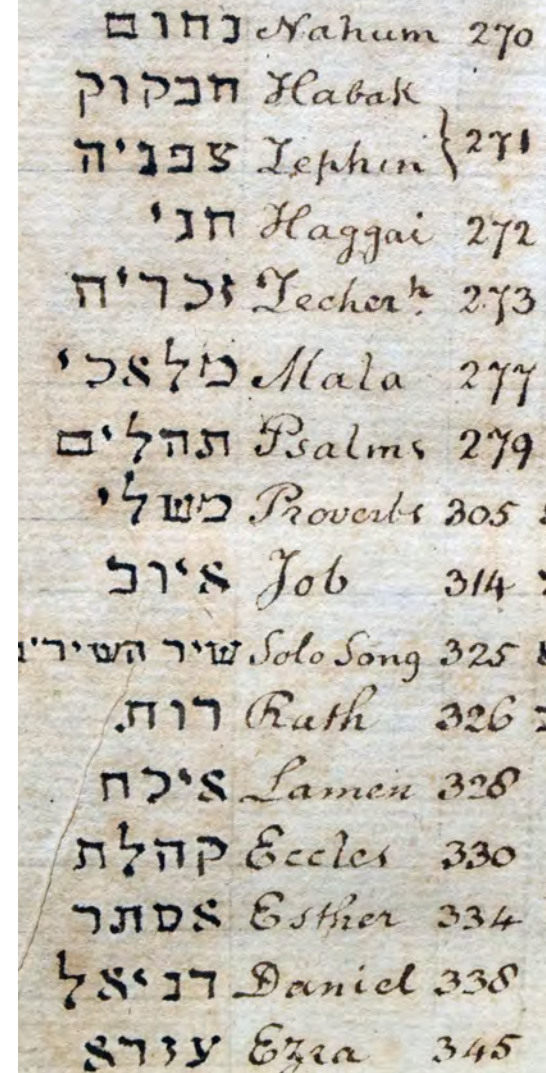 נחום Nahum 270
חבקוק Habak
צפניה Zephin } 271
חגי Haggai 272
זכריה Zecherʰ. 273
מלאכי Mala 277
תהלים Psalms 279
משלי Proverbs 305
איוב Job 314
שיר השיר'י Solo Song 325
רות Ruth 326
איכה Lamen 328
קהלת Eccles 330
אסתר Esther 334
דניאל Daniel 338
עזרא Ezra 345